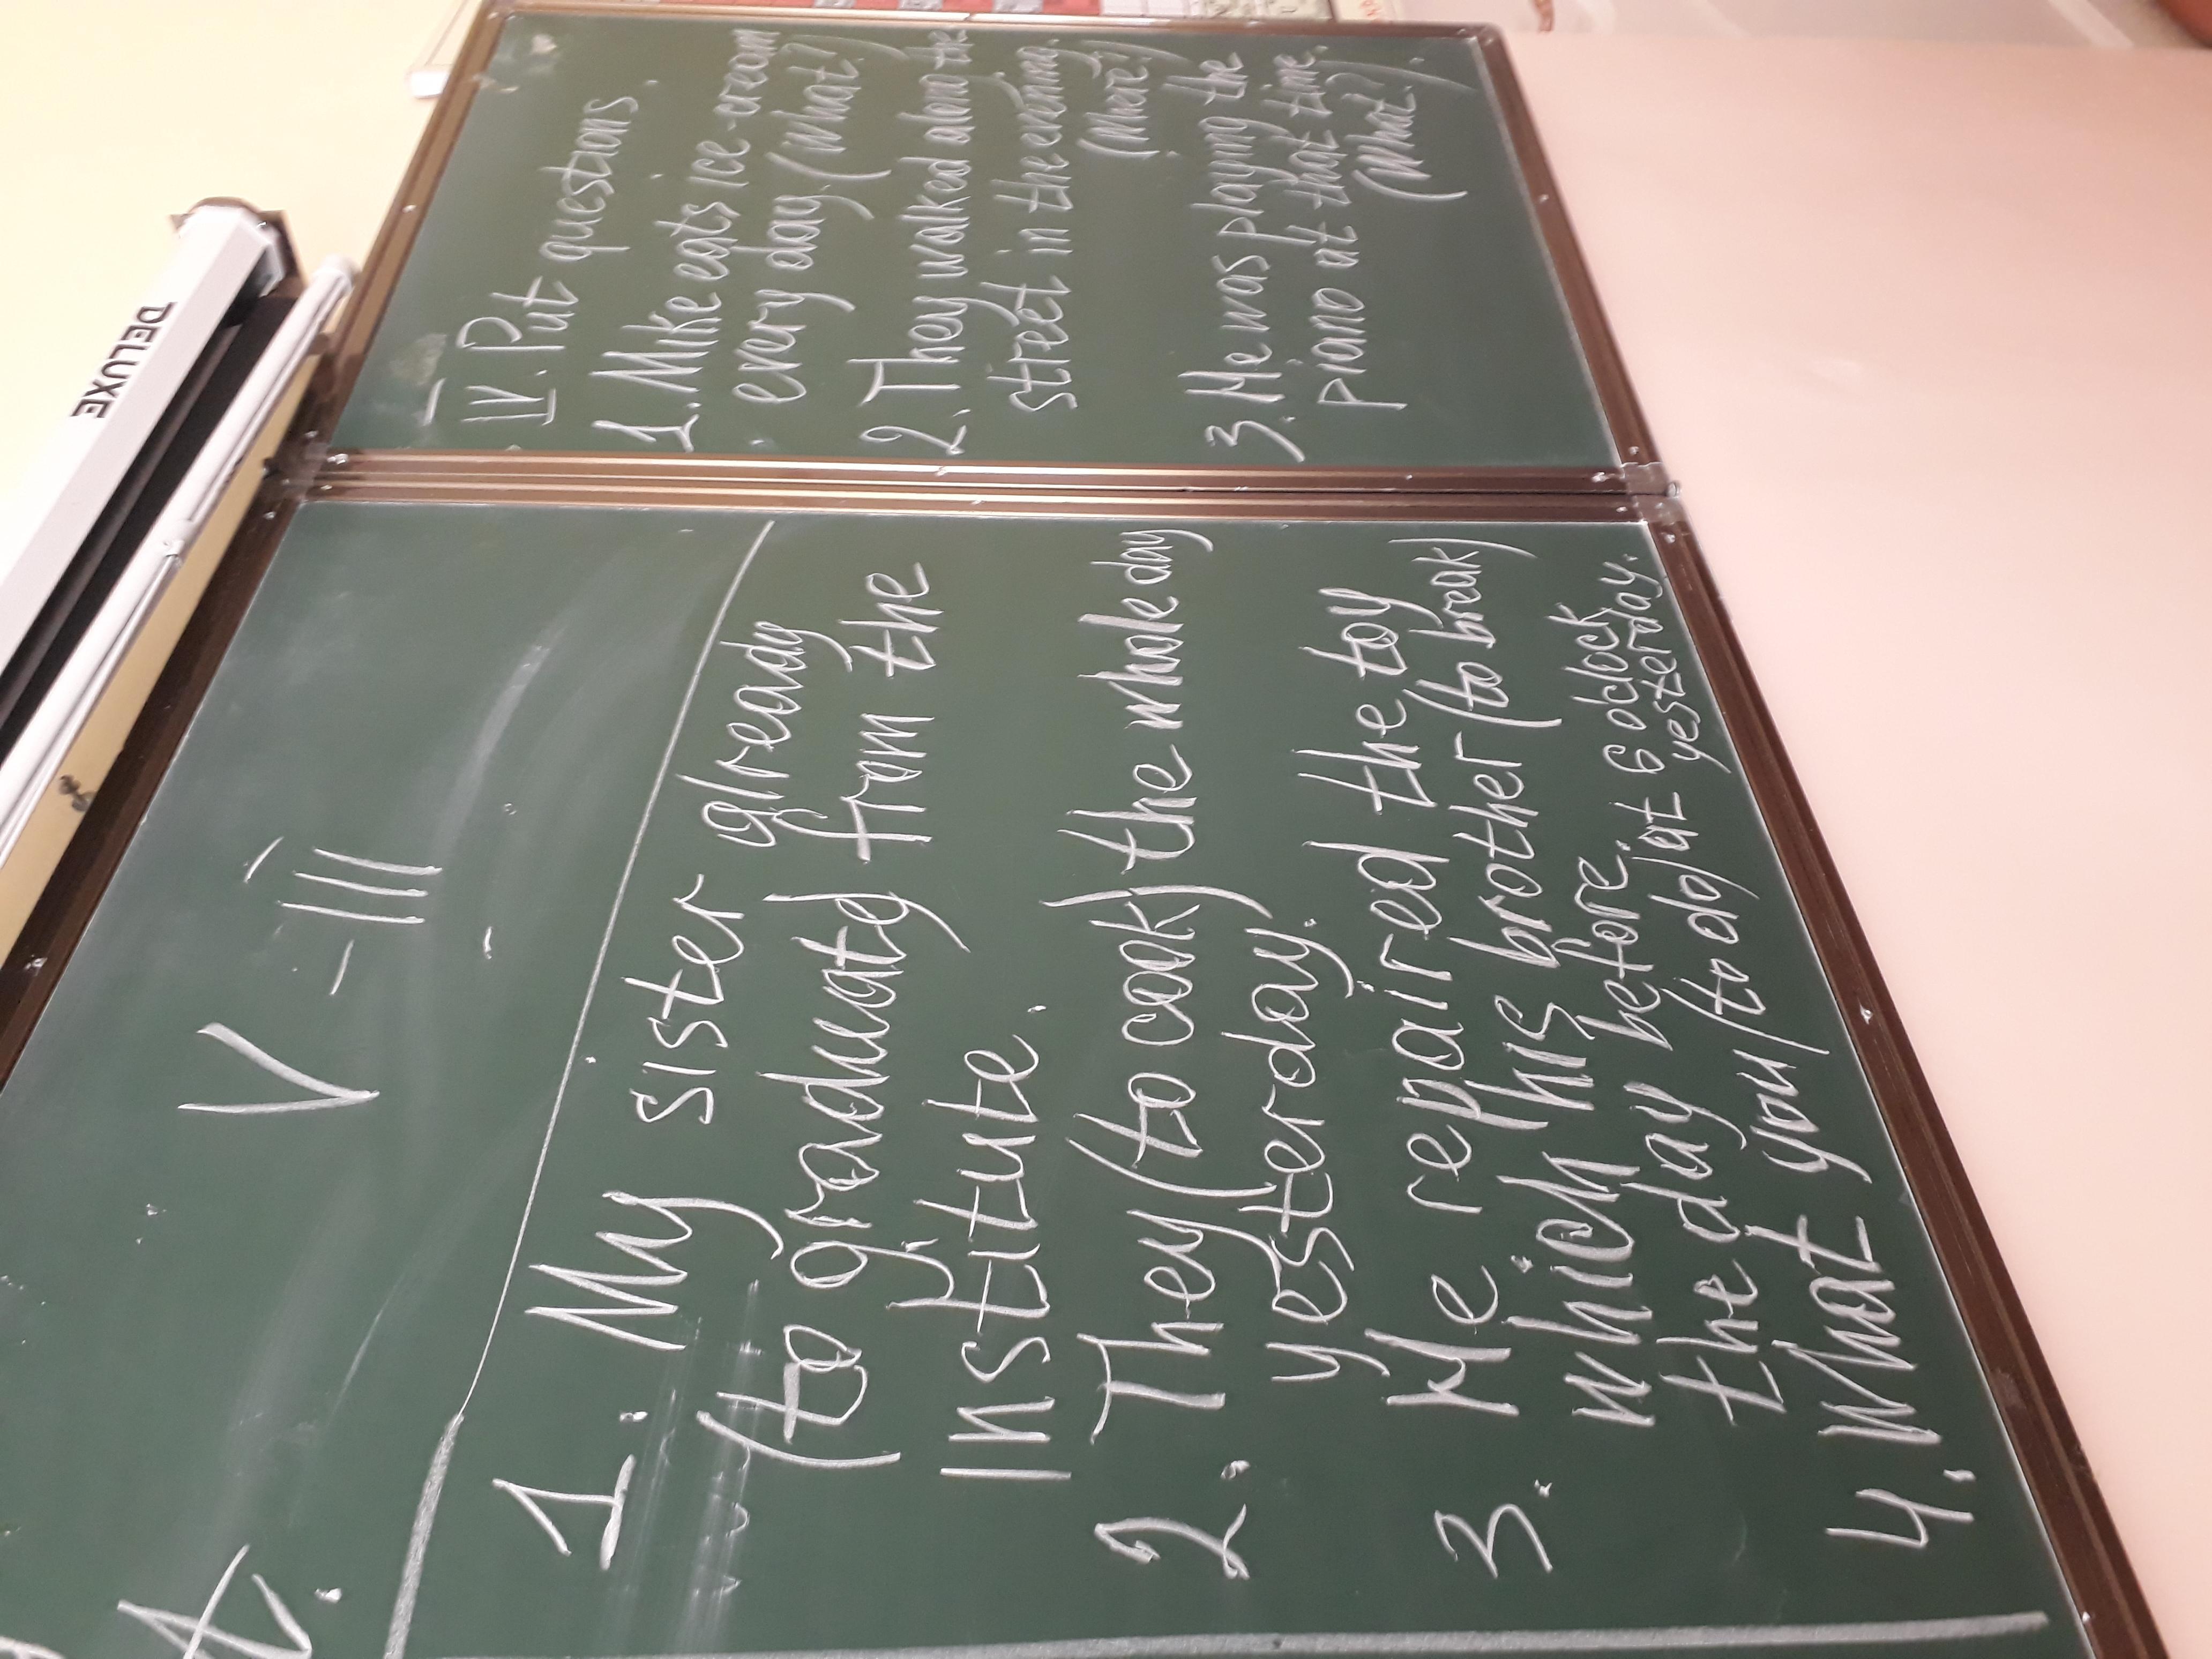 DELUXE
V - III
1. My sister already
(to graduate) from the
institute.
2. They (to cook) the whole day
yesterday.
3. He repaired the toy
which his brother (to break)
the day before.
4. What you (to do) at 6 o'clock
yesterday.
IV. Put questions.
1. Mike eats ice-cream
every day. (what?)
2. They walked along the
street in the evening.
(where?)
3. He was playing the
piano at that time.
(what?).